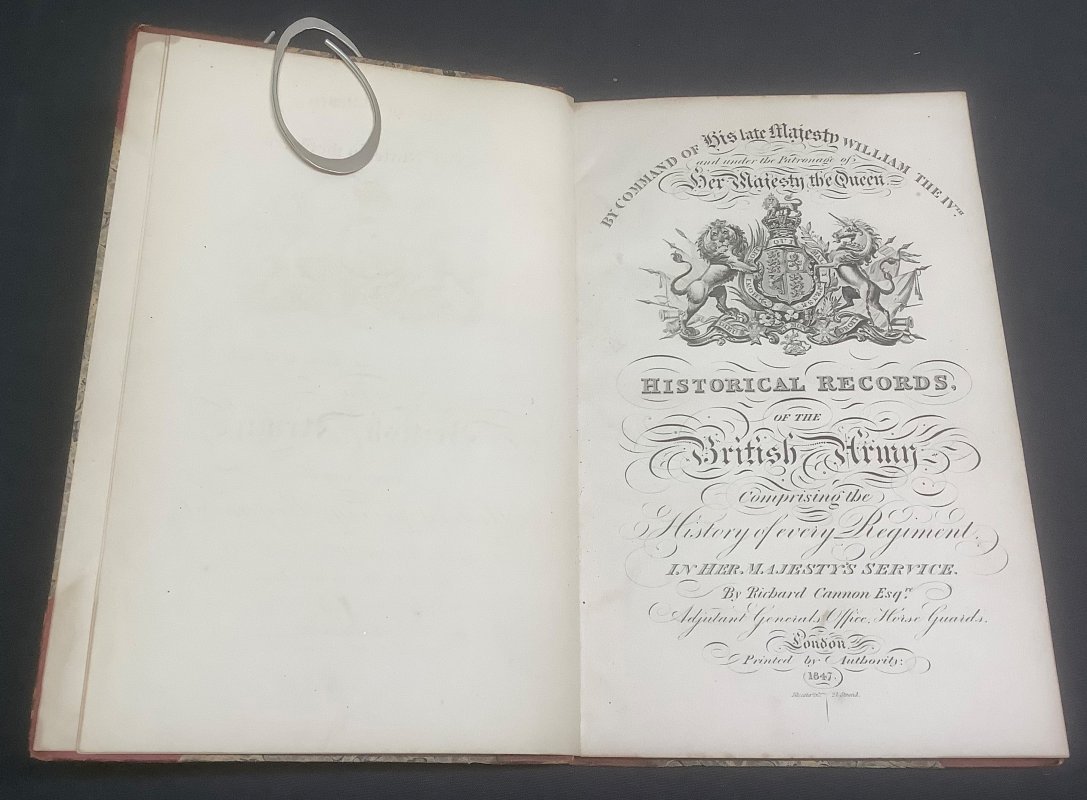 BY COMMAND OF His late Majesty WILLIAM THE IVTH
and under the Patronage of
Her Majesty the Queen
HISTORICAL RECORDS,
OF THE
British Army
Comprising the
History of every Regiment
IN HER MAJESTY'S SERVICE.
By Richard Cannon Esqre
Adjutant Generals Office, Horse Guards.
London
Printed by Authority:
1847.
Strand.